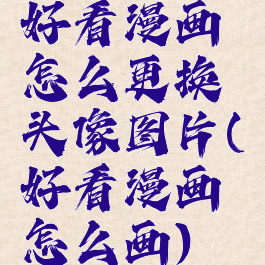 好看漫画
怎么更换
头像图片(
好看漫画
怎么画)